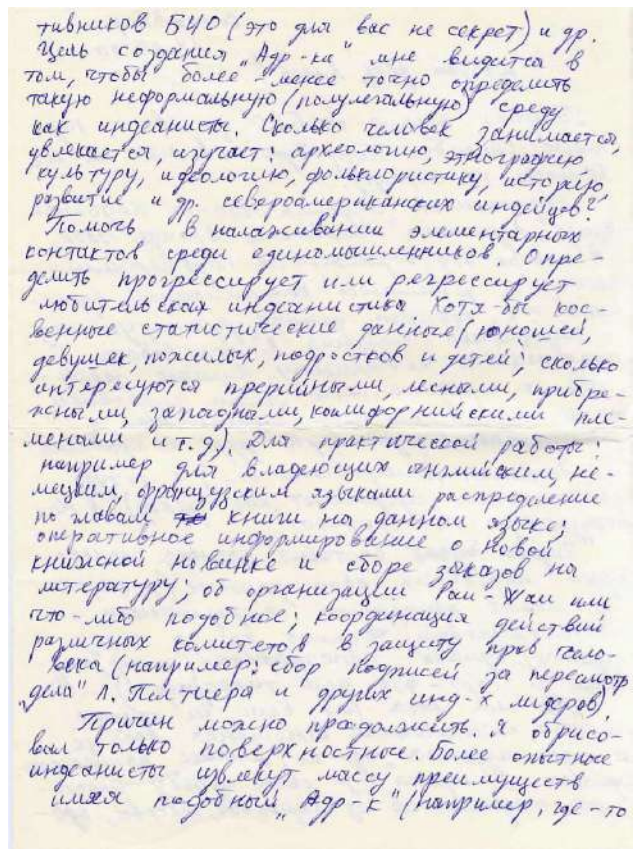 тивников БЧО (это для вас не секрет) и др.
Цель создания „Адр-ка" мне видится в
том, чтобы более-менее точно определить
такую неформальную (полулегальную) среду
как индеанисты. Сколько человек занимается,
увлекается, изучает: археологию, этнографию
культуру, идеологию, фольклористику, историю,
развитие и др. североамериканских индейцев?
Помочь в налаживании элементарных
контактов среди единомышленников. Опре-
делить прогрессирует или регрессирует
любительская индеанистика. Хотя-бы кос-
венные статистические данные (юношей,
девушек, пожилых, подростков и детей; сколько
интересуются прерийными, лесными, прибре-
жными, западными, калифорнийскими пле-
менами и т.д.). Для практической работы:
например для владеющих английским, не-
мецким, французским языками распределение
по главам книги на данном языке;
оперативное информирование о новой
книжной новинке и сборе заказов на
литературу; об организации Рай-Wаи или
что-либо подобное; координация действий
различных комитетов в защиту прав чело-
века (например: сбор подписей за пересмотр
„дела" Л. Пелтиера и других инд-х лидеров).
Причин можно продолжить. Я обрисо-
вал только поверхностные. Более опытные
индеанисты извлекут массу преимуществ
имея подобный „Адр-к" (например, где-то